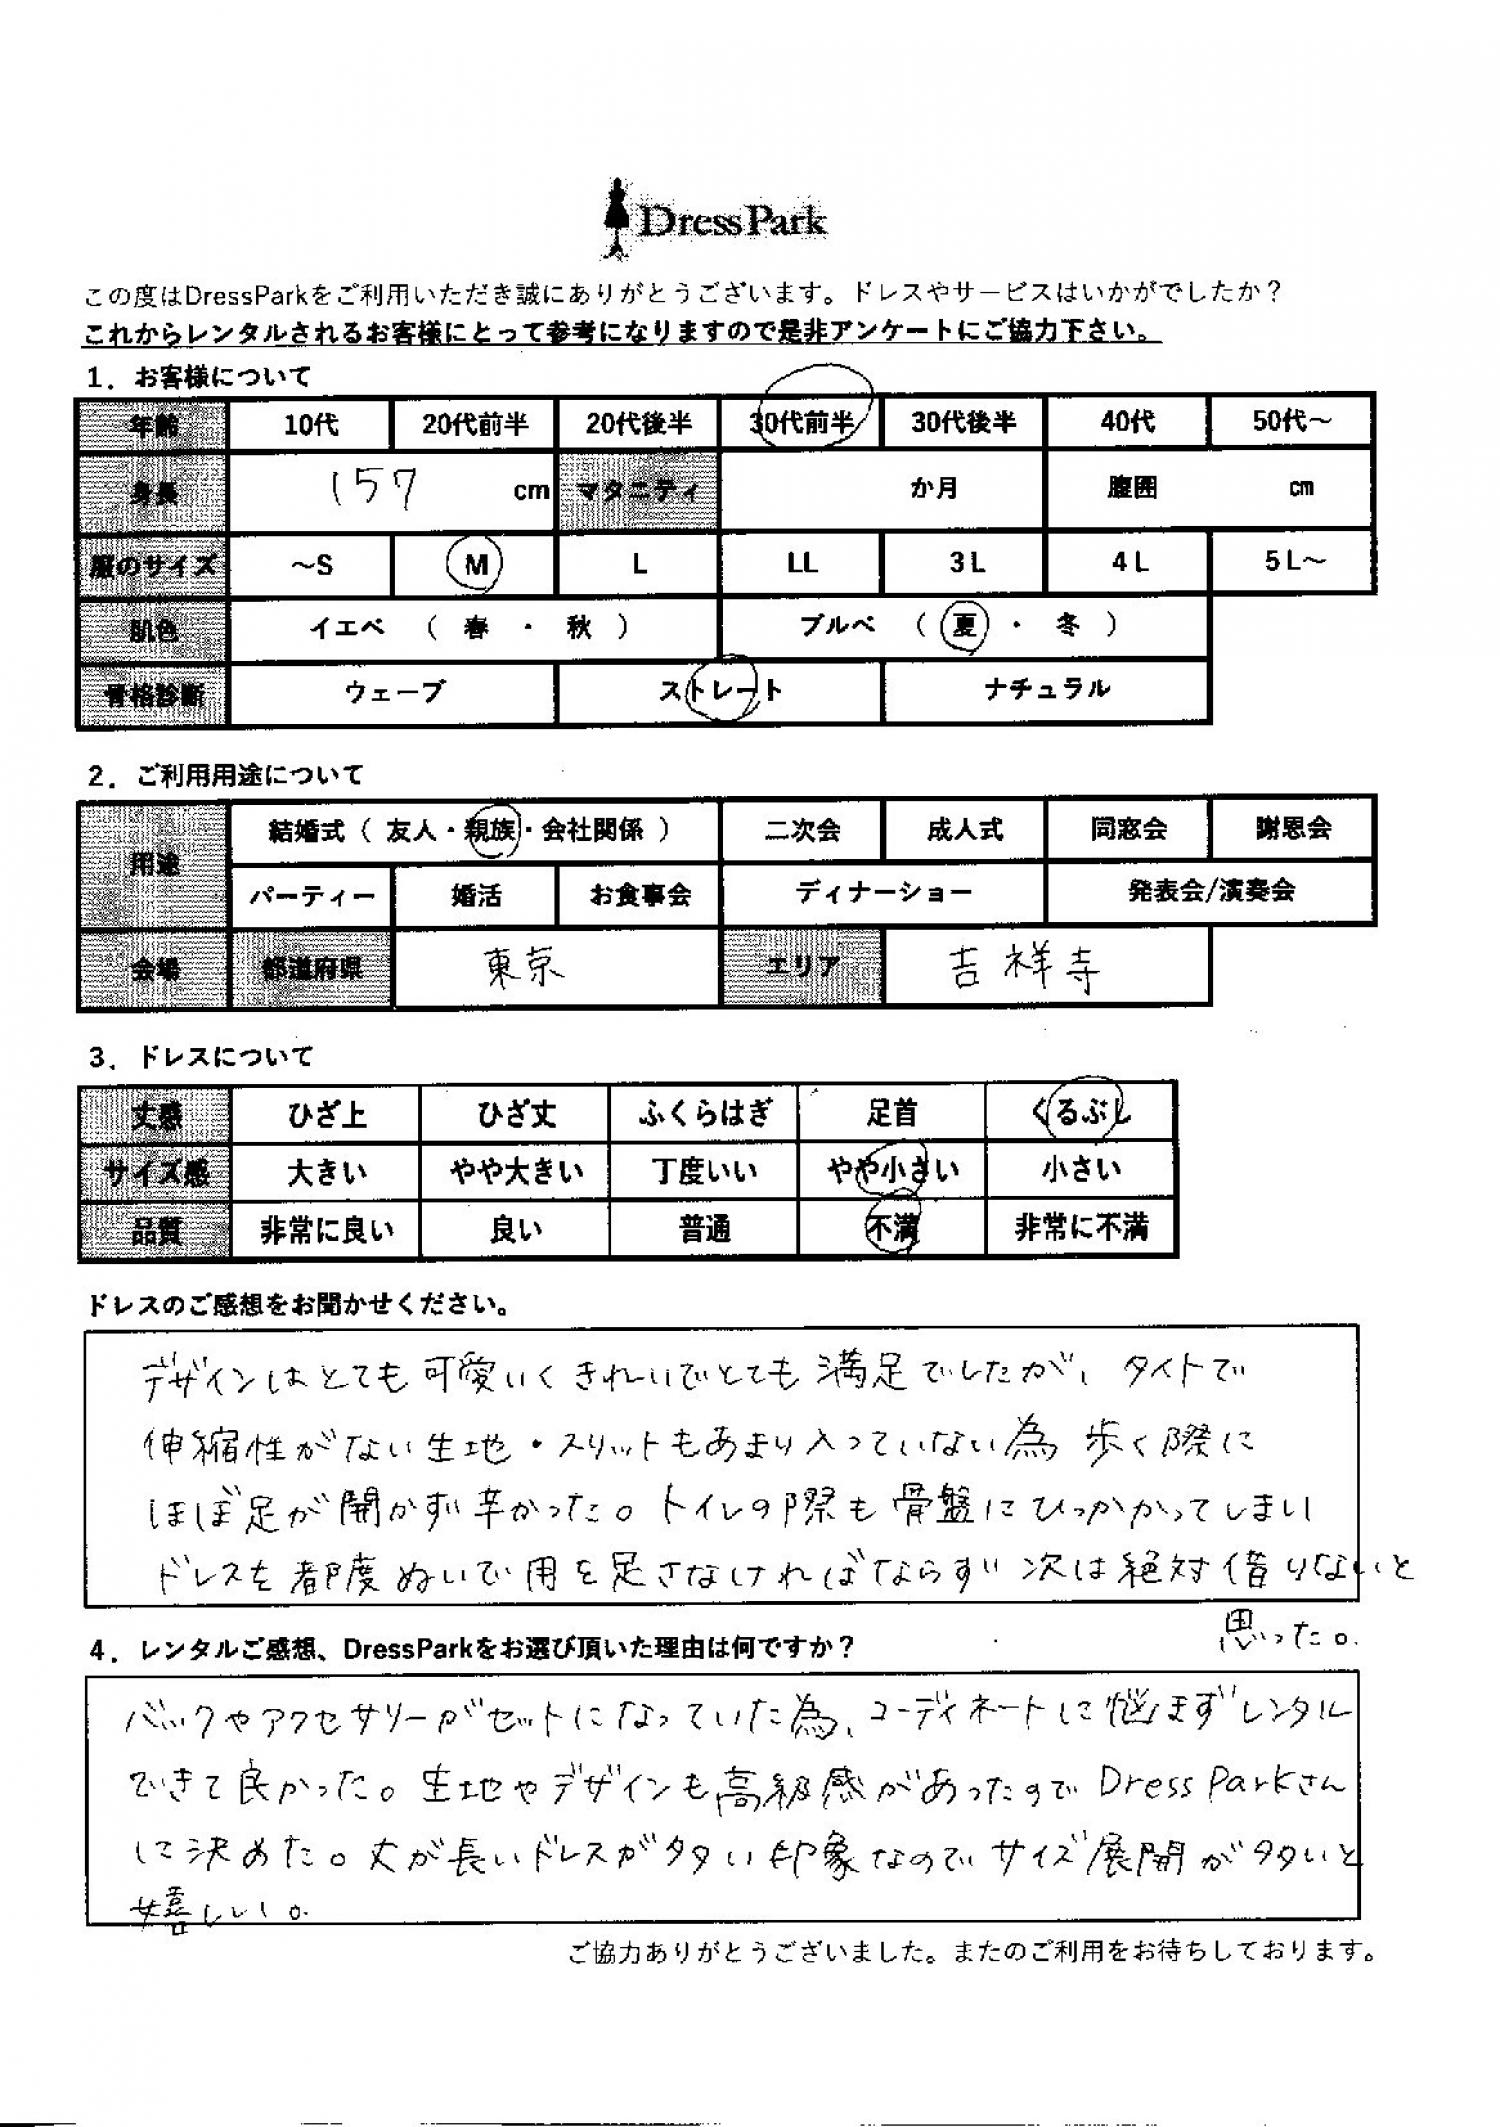 DressPark
この度はDressParkをご利用いただき誠にありがとうございます。ドレスやサービスはいかがでしたか？
これからレンタルされるお客様にとって参考になりますので是非アンケートにご協力下さい。
1．お客様について
年齢 10代 20代前半 20代後半 30代前半 30代後半 40代 50代～
身長 157 cm マタニティ か月 腹囲 cm
服のサイズ ～S M L LL 3L 4L 5L～
肌色 イエベ （ 春 ・ 秋 ） ブルベ （ 夏 ・ 冬 ）
骨格診断 ウェーブ ストレート ナチュラル
2．ご利用用途について
用途 結婚式（ 友人・親族・会社関係 ） 二次会 成人式 同窓会 謝恩会
パーティー 婚活 お食事会 ディナーショー 発表会/演奏会
会場 都道府県 東京 エリア 吉祥寺
3．ドレスについて
丈感 ひざ上 ひざ丈 ふくらはぎ 足首 くるぶし
サイズ感 大きい やや大きい 丁度いい やや小さい 小さい
品質 非常に良い 良い 普通 不満 非常に不満
ドレスのご感想をお聞かせください。
デザインはとても可愛いくきれいでとても満足でしたが、タイトで
伸縮性がない生地・スリットもあまり入っていない為 歩く際に
ほぼ足が開かず辛かった。トイレの際も骨盤にひっかかってしまい
ドレスを都度ぬいで用を足さなければならず 次は絶対借りないと
思った。
4．レンタルご感想、DressParkをお選び頂いた理由は何ですか？
バックやアクセサリーがセットになっていた為、コーディネートに悩まずレンタル
できて良かった。生地やデザインも高級感があったので Dress Parkさん
に決めた。丈が長いドレスが多い印象なのでサイズ展開が多いと
嬉しい。
ご協力ありがとうございました。またのご利用をお待ちしております。